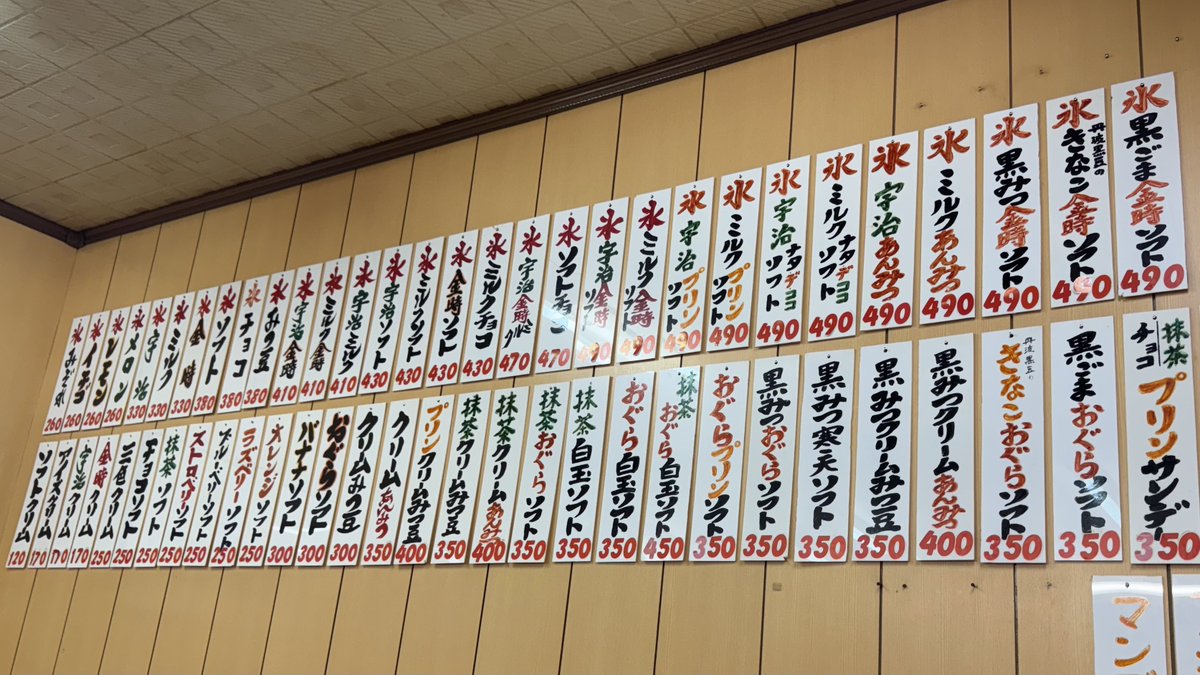 氷 黒ごま金時ソフト 490
氷 丹波黒豆のきなこ金時ソフト 490
氷 黒みつ金時ソフト 490
氷 ミルクあんみつ 490
氷 宇治あんみつ 490
氷 ミルクナタデココソフト 490
氷 宇治ナタデココソフト 490
氷 ミルクプリンソフト 490
氷 宇治プリンソフト 490
氷 ミルク金時ソフト 490
氷 宇治金時ソフト 490
氷 ソフトチョコ 470
氷 宇治金時ミルク 470
氷 ミルクチョコ 430
氷 金時ソフト 430
氷 ミルクソフト 430
氷 宇治ソフト 430
氷 宇治ミルク 410
氷 ミルク金時 410
氷 宇治金時 410
氷 みつ豆 380
氷 チョコ 380
氷 ソフト 380
氷 金時 330
氷 ミルク 330
氷 宇治 330
氷 メロン 260
氷 レモン 260
氷 イチゴ 260
氷 260
抹茶チョコプリンサンデー 350
黒ごまおぐらソフト 350
丹波黒豆のきなこおぐらソフト 350
黒みつクリームあんみつ 400
黒みつクリームみつ豆 350
黒みつ寒天ソフト 350
黒みつおぐらソフト 350
おぐらプリンソフト 350
抹茶おぐら白玉ソフト 450
おぐら白玉ソフト 350
抹茶白玉ソフト 350
抹茶おぐらソフト 350
抹茶クリームあんみつ 400
抹茶クリームみつ豆 350
プリンクリームみつ豆 400
クリームあんみつ 350
クリームみつ豆 300
おぐらソフト 300
バナナソフト 300
オレンジソフト 250
ラズベリーソフト 250
ブルーベリーソフト 250
ストロベリーソフト 250
抹茶ソフト 250
チョコソフト 250
三色クリーム 250
金時クリーム 250
宇治クリーム 170
アイスクリーム 170
ソフトクリーム 120
マン